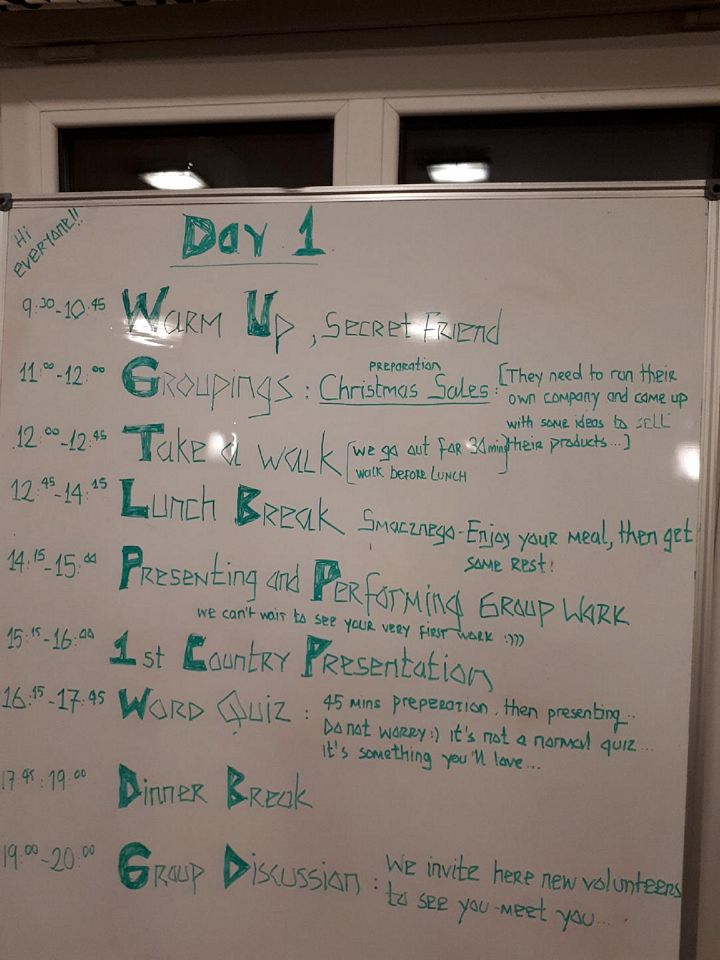 Hi everyone!!
Day 1
9:30-10:45 Warm Up, Secret Friend
11:00-12:00 Groupings : preparation Christmas Sales : [They need to run their
own company and came up
with some ideas to sell
their products...]
12:00-12:45 Take a walk [we go out for 30 min
walk before lunch]
12:45-14:15 Lunch Break Smacznego - Enjoy your meal, then get
some rest!
14:15-15:00 Presenting and Performing Group Work
we can't wait to see your very first work :)))
15:15-16:00 1st Country Presentation
16:15-17:45 Word Quiz : 45 mins preperation, then presenting..
Do not worry:) it's not a normal quiz...
it's something you'll love...
17:45:19:00 Dinner Break
19:00-20:00 Group Discussion : We invite here new volunteers
to see you - meet you...